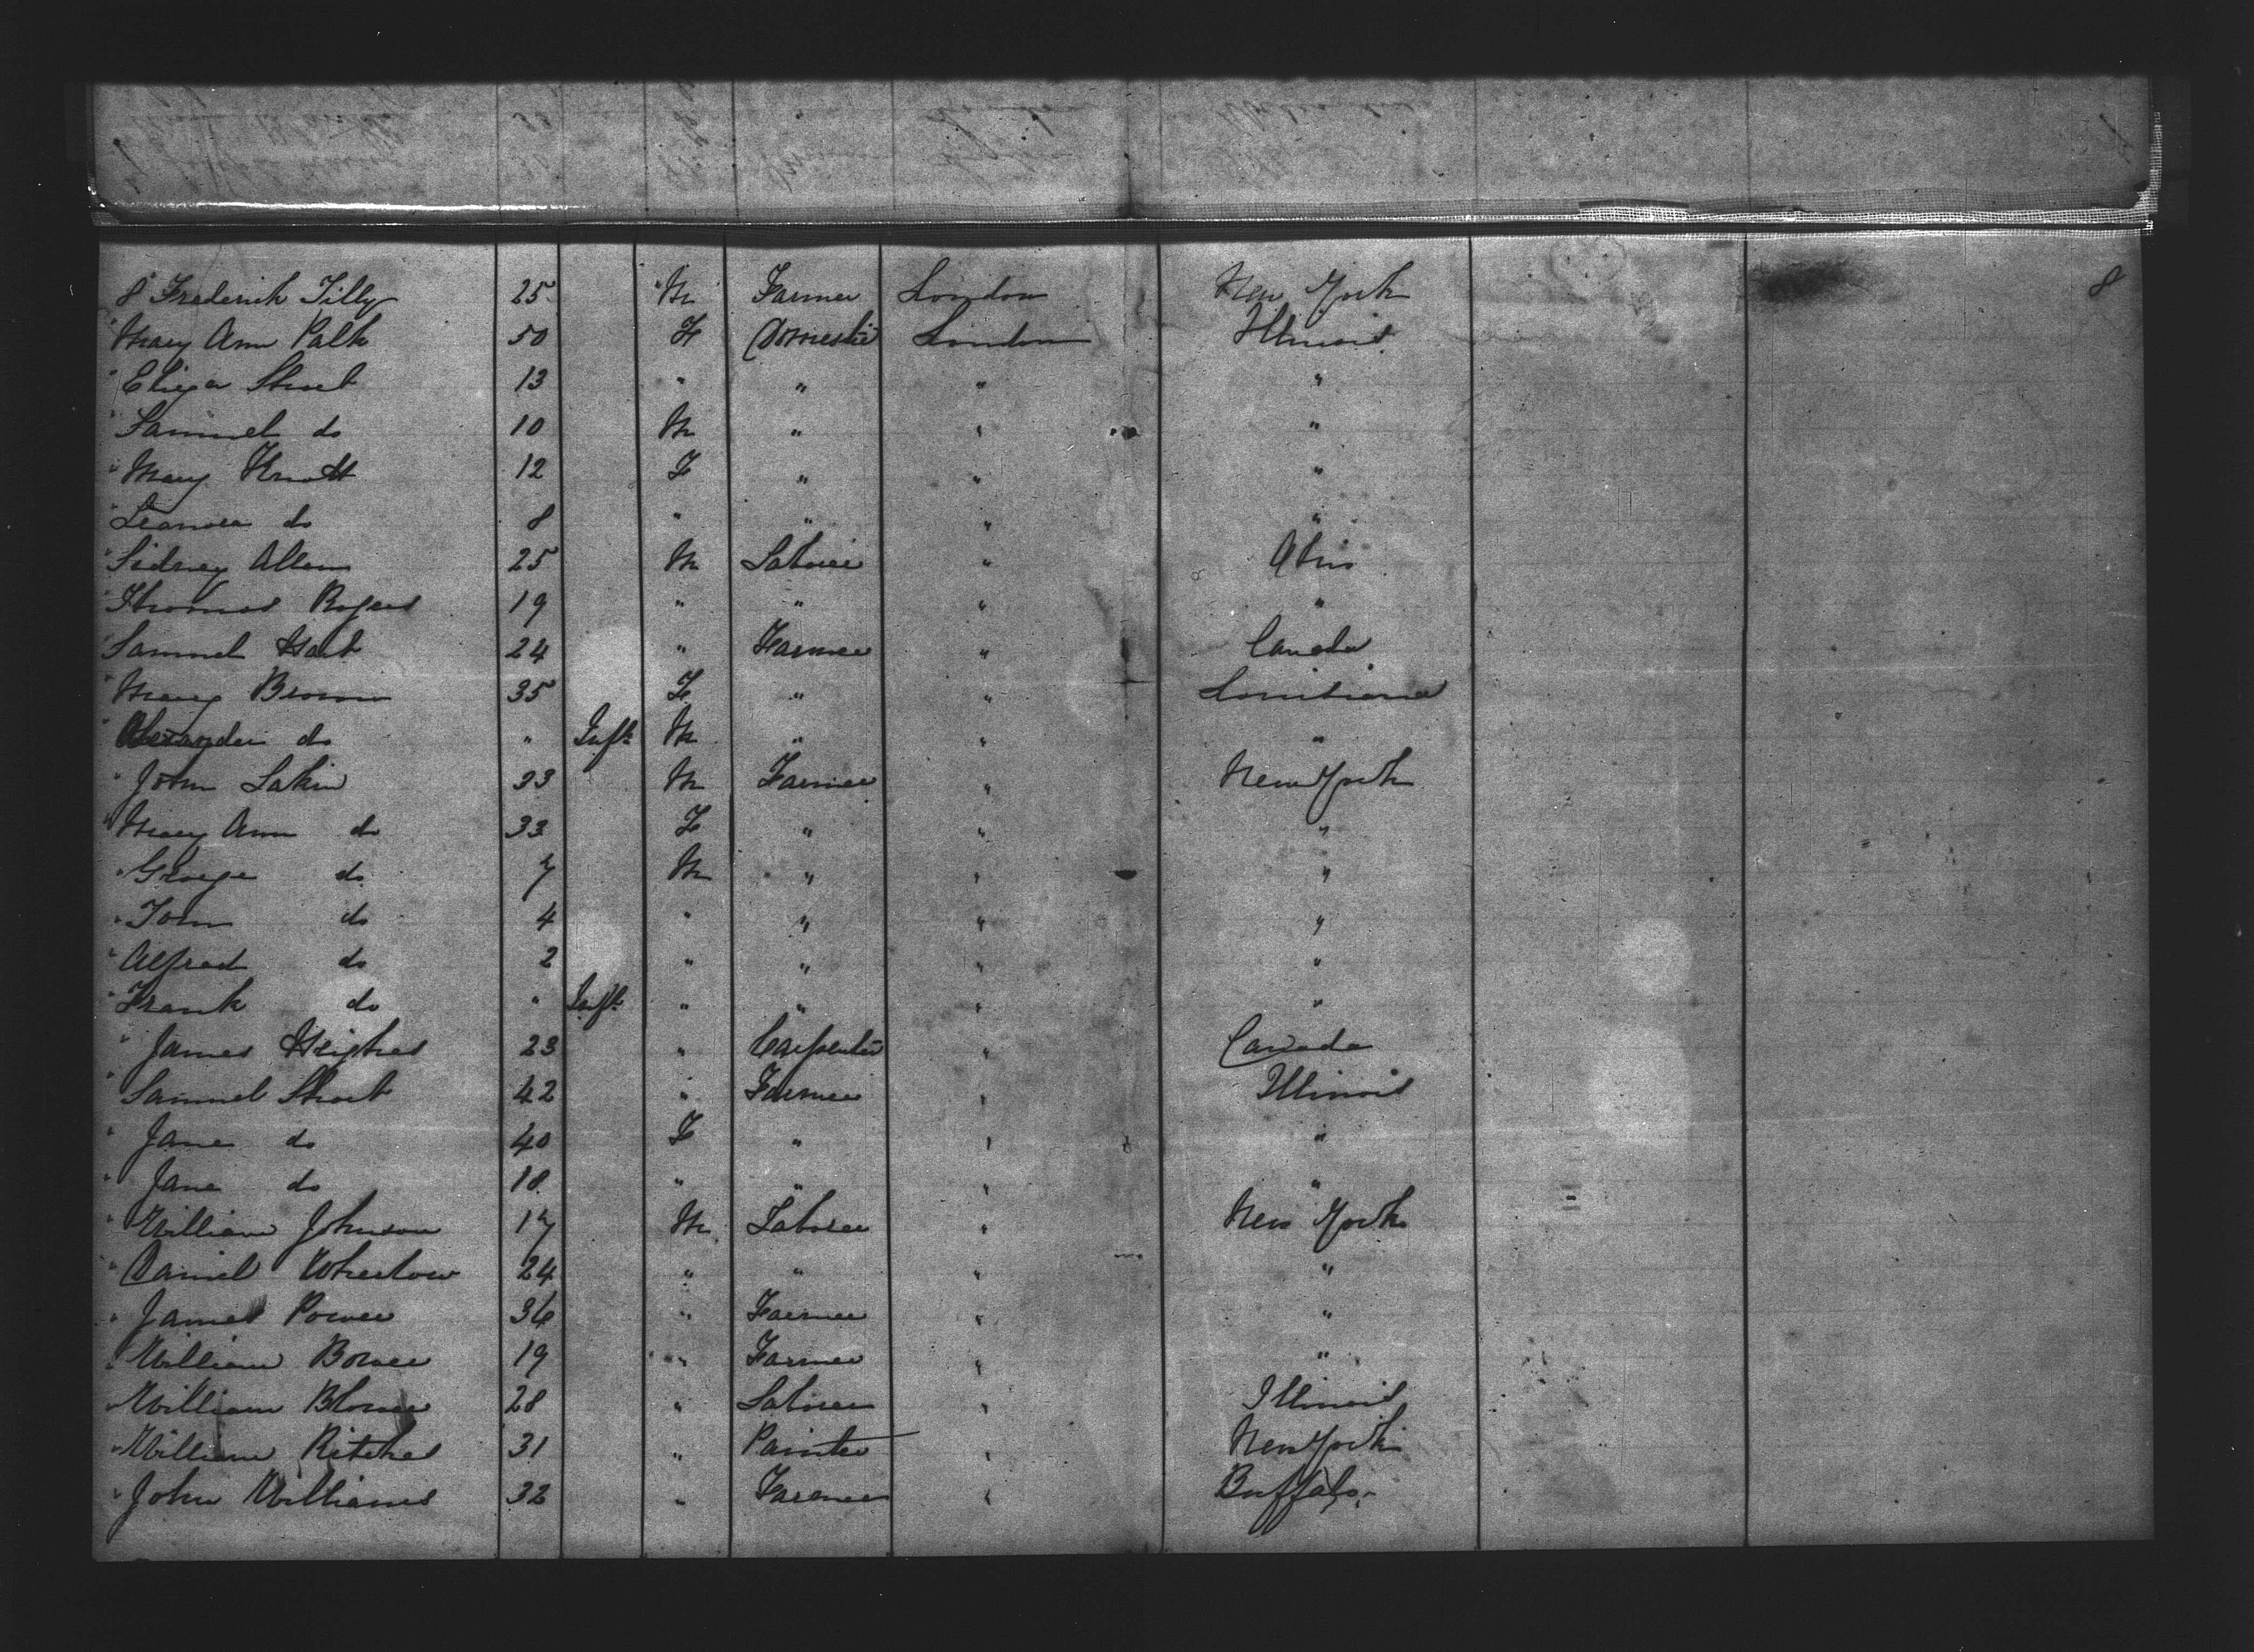 8 Frederick Tilly 25 M Farmer London New York 8
" Mary Ann Palk 50 F Domestic London Illinois
" Eliza Short 13 " " " "
" Samuel do 10 M " " "
" Mary Knott 12 F " " "
" do 8 " " " "
" Sidney Allen 25 M Laborer " Ohio
" Thomas Rogers 19 " " " "
" Samuel Hart 24 " Farmer " Canada
" Mary Brown 35 F " " Louisiana
" Alexander do " Inft M " " "
" John Lakin 33 M Farmer " New York
" Mary Ann do 33 F " " "
" George do 7 M " " "
" Tom do 4 " " " "
" Alfred do 2 " " " "
" Frank do " Inft " " " "
" James 23 " Carpenter " Canada
" Samuel Short 42 " Farmer " Illinois
" Jane do 40 F " " "
" Jane do 18 " " " "
" William Johnson 17 M Laborer " New York
" Daniel 24 " " " "
" James Power 36 " Farmer " "
" William Bower 19 " Farmer " "
" William 28 " Laborer " Illinois
" William Ritches 31 " Painter " New York
" John Williams 32 " Farmer " Buffalo